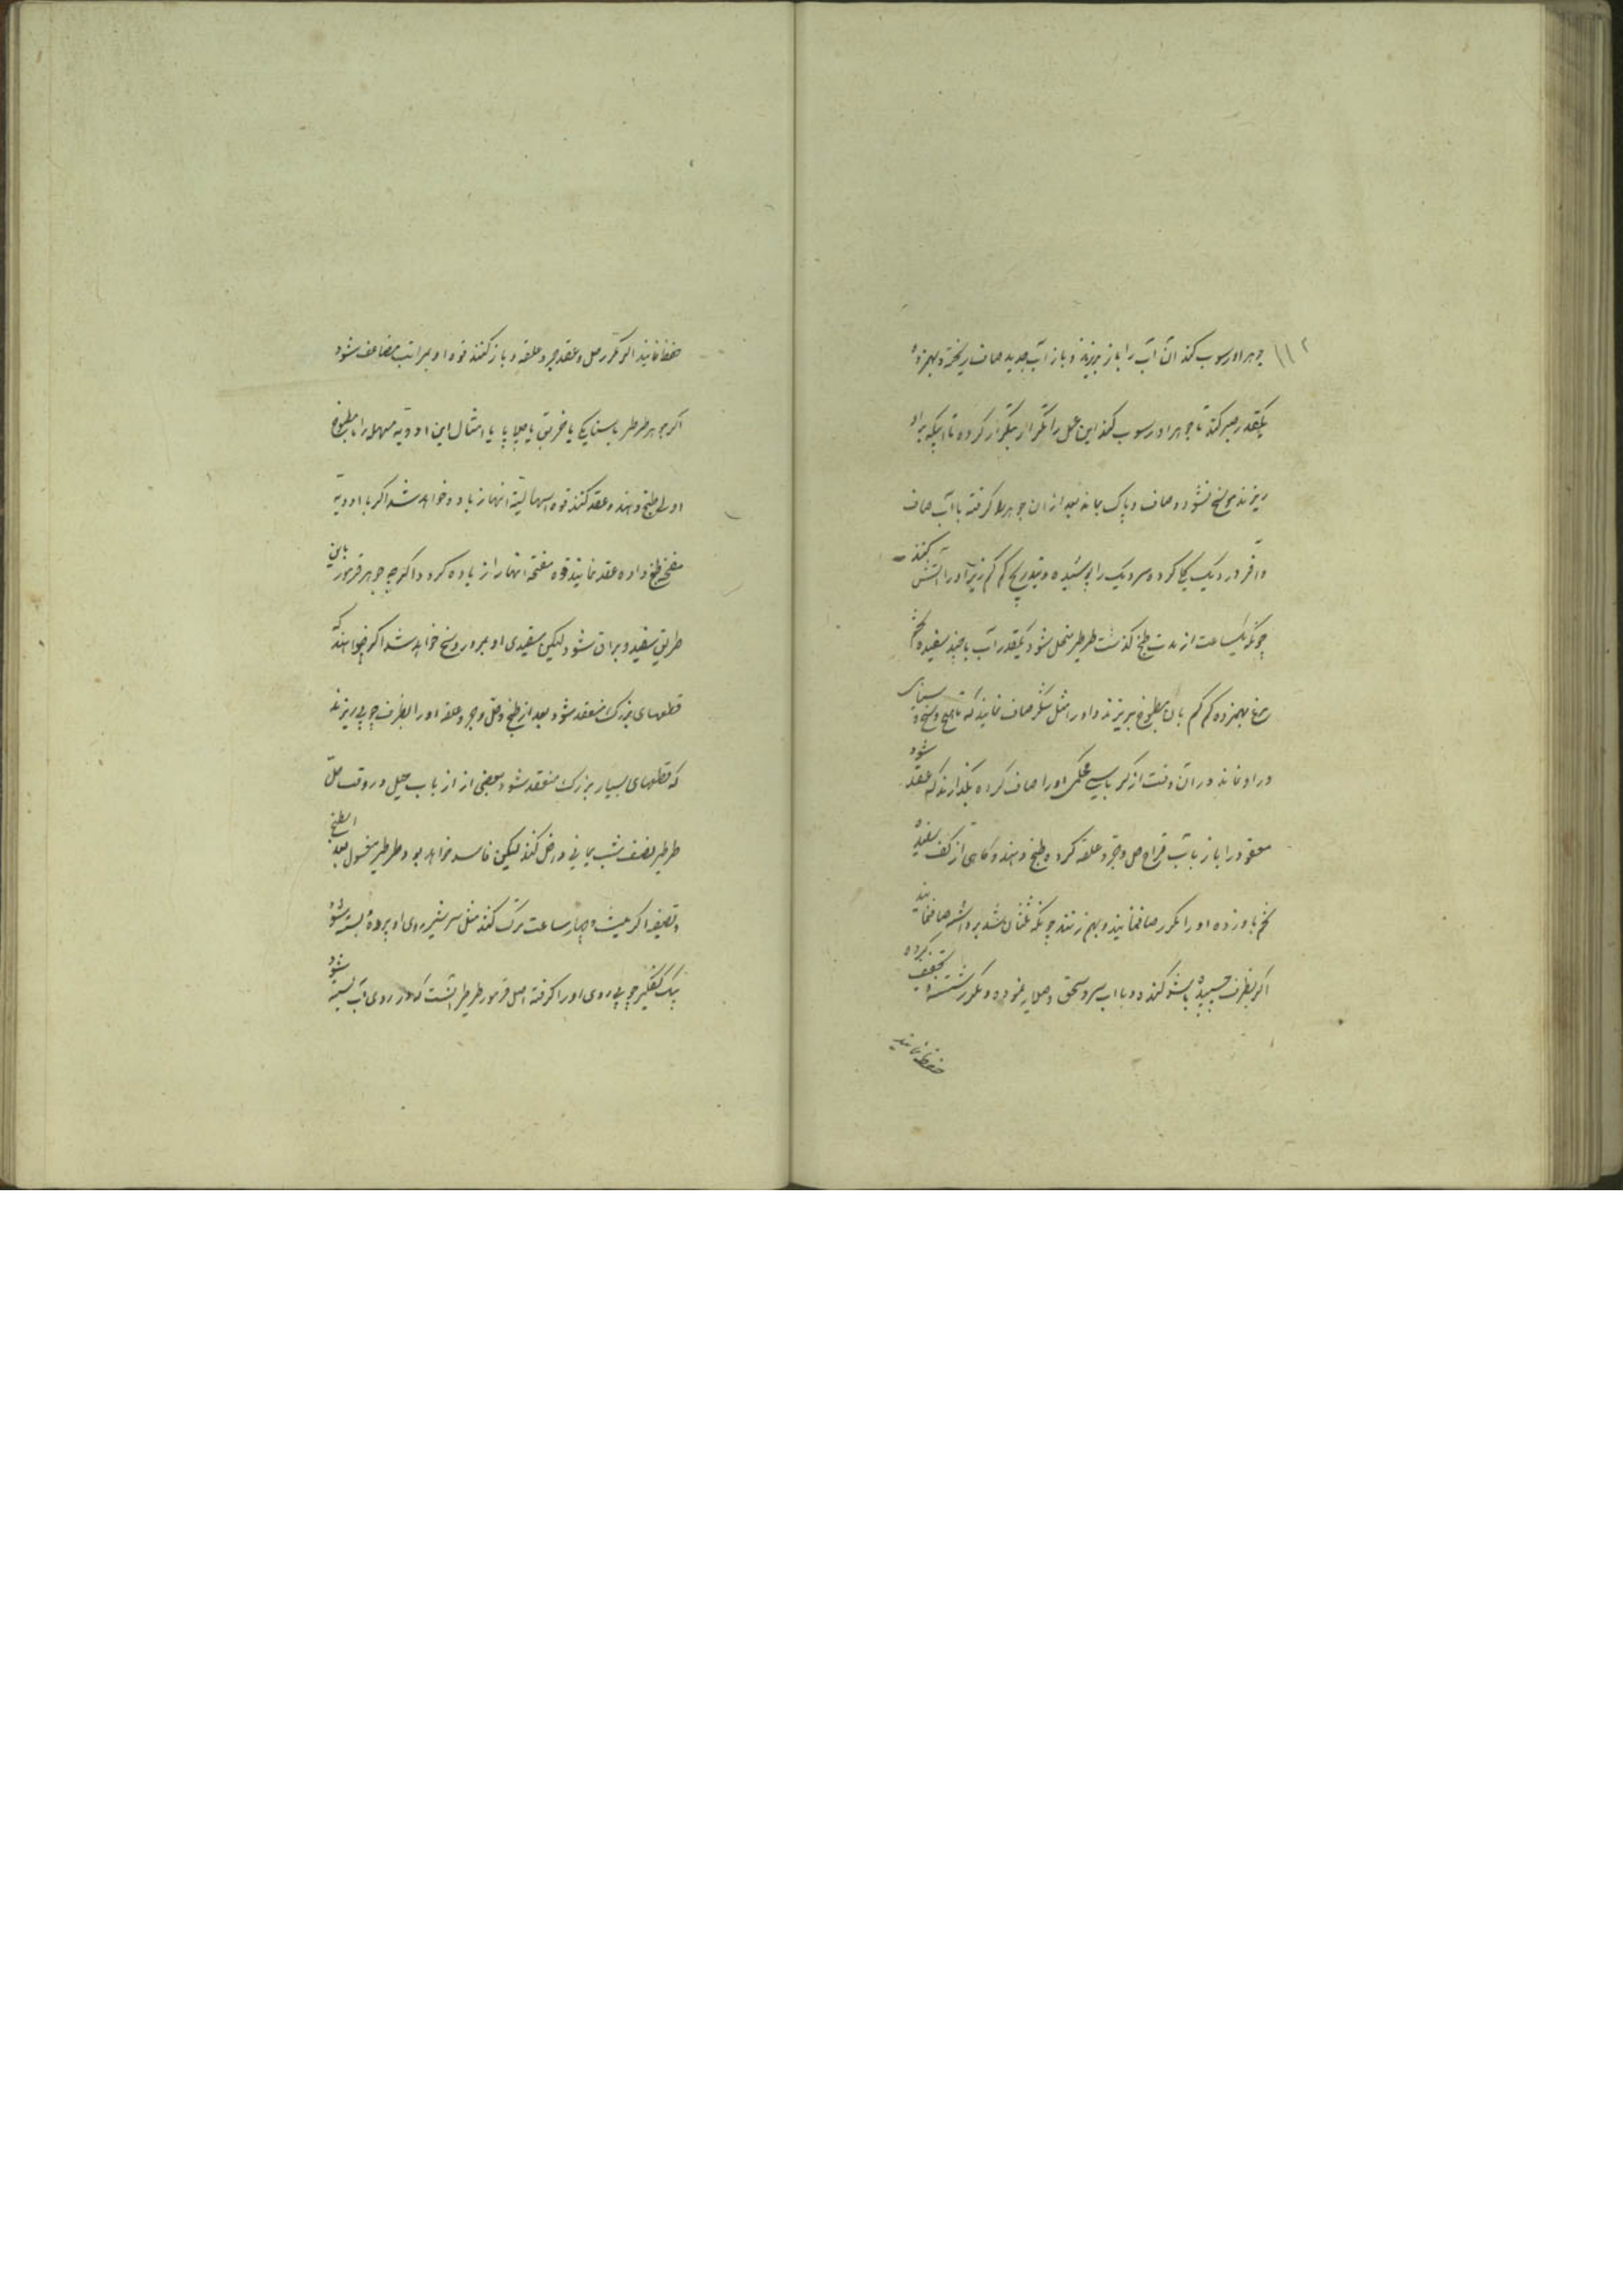 ۱۱۲
جوهر او رسوب کند آن آب را باز بریزند و باز آب جدید صاف ریخته و بهم زده
یکقدر صبر کنند تا جوهر او رسوب کند این عمل را تکرار بتکرار کرده تا آبیکه برو
ریزند هیچ وسخ نشود و صاف و پاک بماند بعد از آن جوهر را گرفته با آب صاف
وافر در دیک یکجا کرده و سر دیک را پوشیده و بتدریج کم کم زیر او را آتش کنند
چونکه یکساعت از مدت طبخ گذشت طرطیر منحل شود یکقدر آب با چند سفیده تخم
مرغ بهم زده کم کم بآن مطبوخ بریزند و او را مثل شکر صاف نمایند که تا هیچ وسخ و سیاهی
در او نماند در آن وقت از کرباس محکمی او را صاف کرده بگذارند که عقد شود
معقود را باز بآب قراح حل و جر و علقه کرده طبخ دهند و گاهی از کف سفیده
تخم باو زده او را مکرر صاف نمایند و بهم زنند چونکه ثلثان شد برداشته صاف نمایند
اگر بظرف چسبیده باشد کنده و با آب سرد سحق و صلایه نموده و مکرر شسته تجفیف کرده
حفظ نمایند
حفظ نمایند اگر مکرر حل و عقد و جر و علقه و باز کنند قوه او بمراتب مضاعف شود
اگر جوهر طرطیر با سنای مکی یا خربق یا جلاپا یا امثال این ادویه مسهله را با مطبوخ
او لی طبخ دهند و عقد کنند قوه اسهالیة انها زیاده خواهد شد اگر با ادویة
مفتح طبخ داده عقد نمایند قوه مفتحه انها را زیاده کرد و اگرچه جوهر مزبور باین
طریق سفید و براق شود لیکن سفیدی او بمرور وسخ خواهد شد اگر خواهند که
قطعهای بزرک منعقد شود بعد از طبخ و حل و جر و علقه او را بظرف چوبی ریزند
که قطعهای بسیار بزرک منعقد شود بعضی از ارباب حیل در وقت حل
طرطیر نصف شب یمانی داخل کنند لیکن فاسد خواهد بود و طرطیر مغسول بعد الطبخ
و تصفیه اگر بیست و چهار ساعت ترک کنند مثل سرشیر روی او پرده بسته شود
بیک کفکیر چوبی روی او را گرفته اصل مزبور طرطیر انست که در روی آب بسته شود